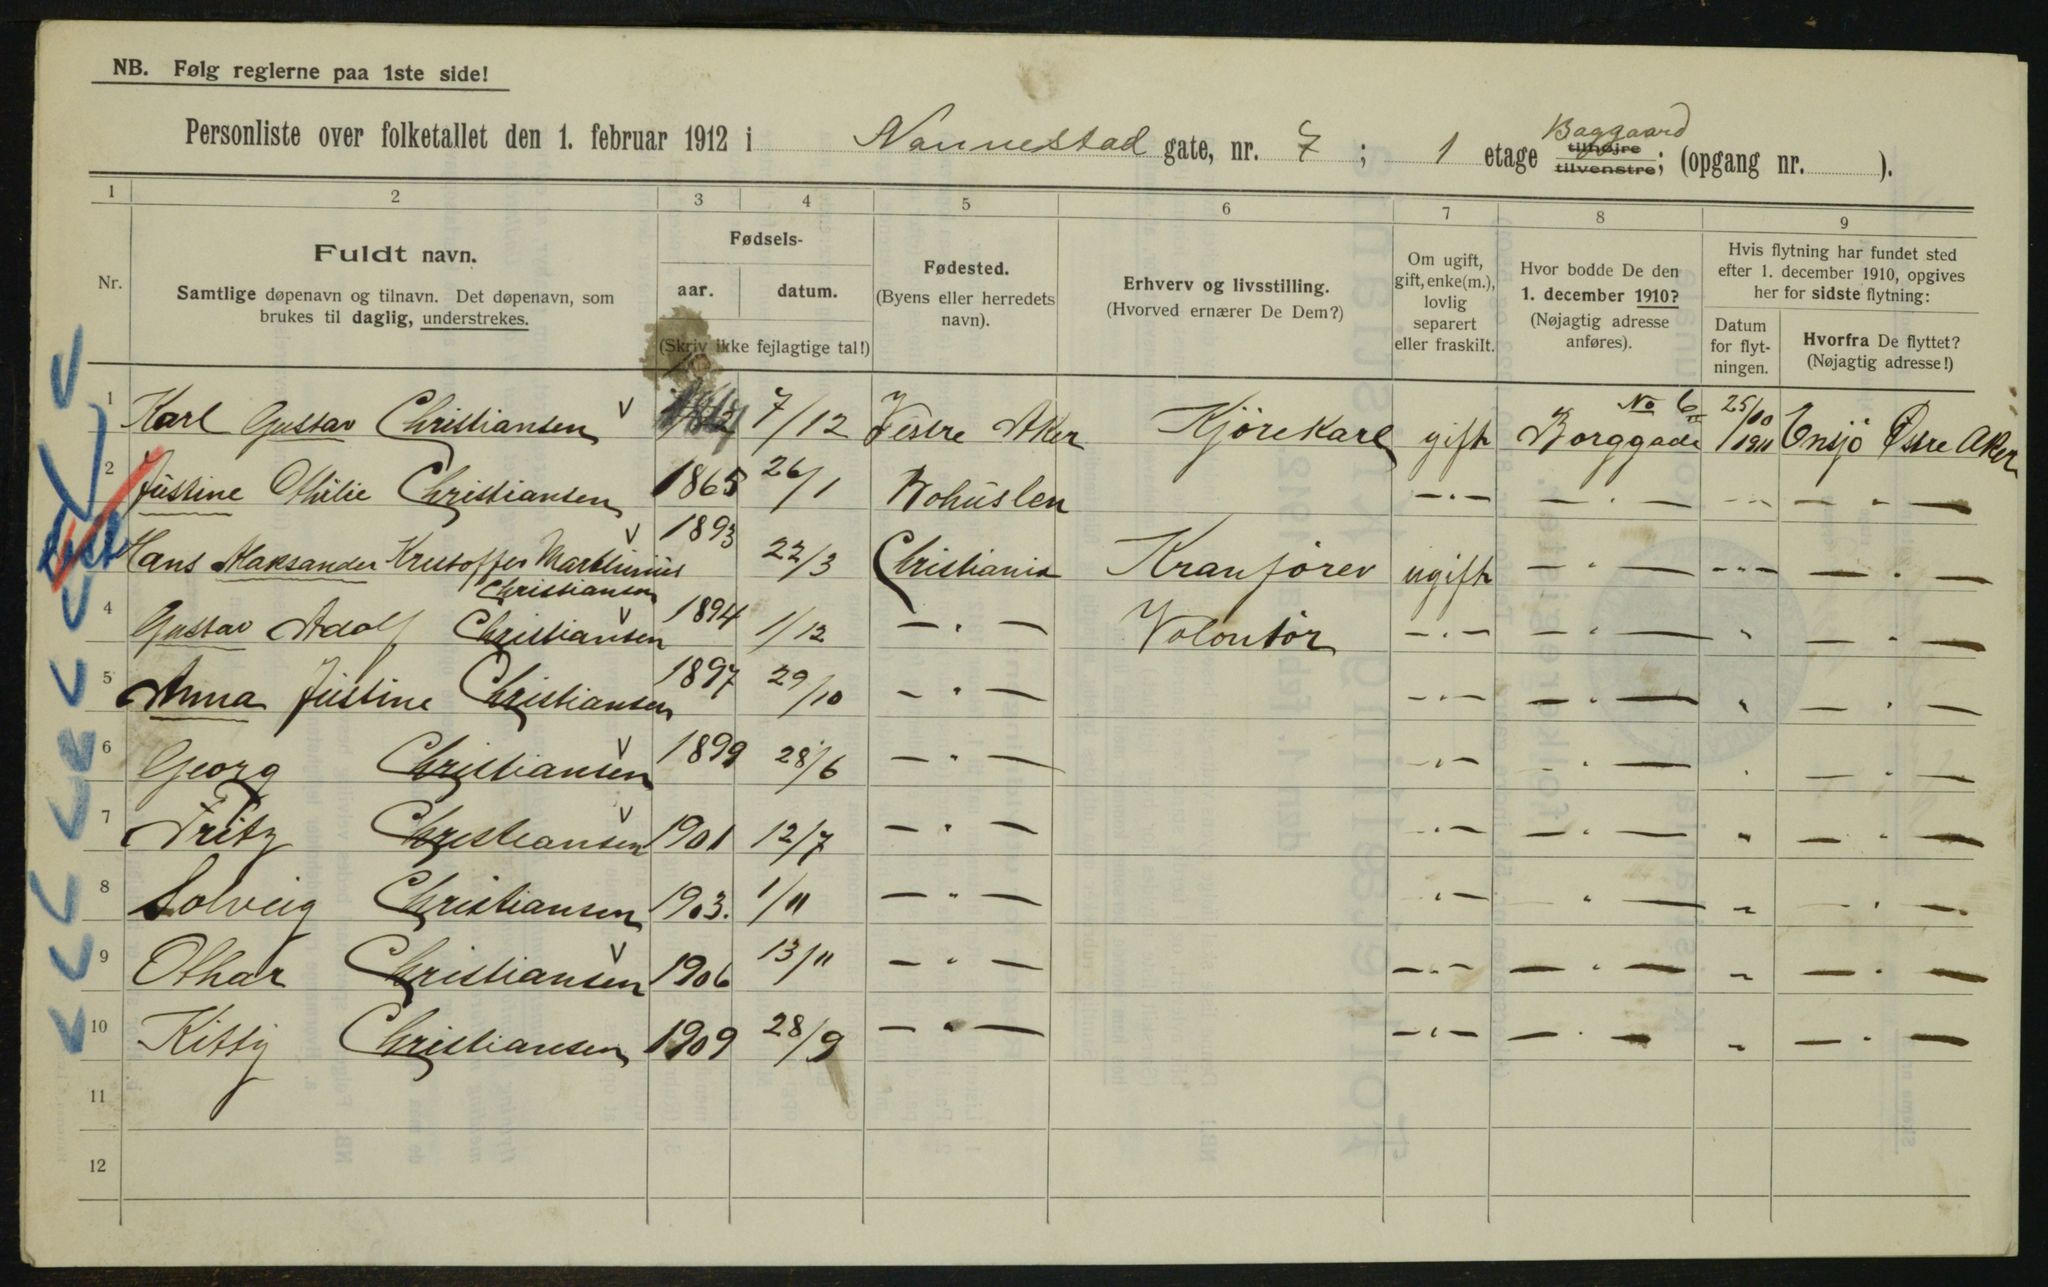 NB. Følg reglerne paa 1ste side!
Baggaard
Personliste over folketallet den 1. februar 1912 i Nannestad gate, nr. 7; 1 etage tilhøjre tilvenstre; (opgang nr. ).
1 2 3 4 5 6 7 8 9
Nr.
Fuldt navn.
Samtlige døpenavn og tilnavn. Det døpenavn, som
brukes til daglig, understrekes.
Fødsels-
aar. datum.
(Skriv ikke fejlagtige tal!)
Fødested.
(Byens eller herredets
navn).
Erhverv og livsstilling.
(Hvorved ernærer De Dem?)
Om ugift,
gift, enke(m.),
lovlig
separert
eller fraskilt.
Hvor bodde De den
1. december 1910?
(Nøjagtig adresse
anføres).
Hvis flytning har fundet sted
efter 1. december 1910, opgives
her for sidste flytning:
Datum
for flyt-
ningen.
Hvorfra De flyttet?
(Nøjagtig adresse!)
1 Karl Gustav Christiansen 7/12 Vestre Aker Kjørekarl gift Borggade No 6 25/10 1911 Ensjö Østre Aker
2 Justine Othilie Christiansen 1865 26/1 Bohuslen —"— —"— —"— —"—
Hans Aleksander Kristoffer Christiansen 1893 22/3 Christiania Kranfører ugift —"— —"— —"—
4 Gustav Adolf Christiansen 1894 1/12 —"— Volontør —"— —"— " —"—
5 Anna Justine Christiansen 1897 29/10 —"— —"— —"— " —"—
6 Georg Christiansen 1899 28/6 —"— —"— —"— " —"—
7 Fritz Christiansen 1901 12/7 —"— —"— —"— " —"—
8 Solveig Christiansen 1903. 1/11 —"— —"— —"— " —"—
9 Othar Christiansen 1906 13/11 —"— —"— —"— " —"—
10 Kitty Christiansen 1909 28/9 —"— —"— —"— " —"—
11
12